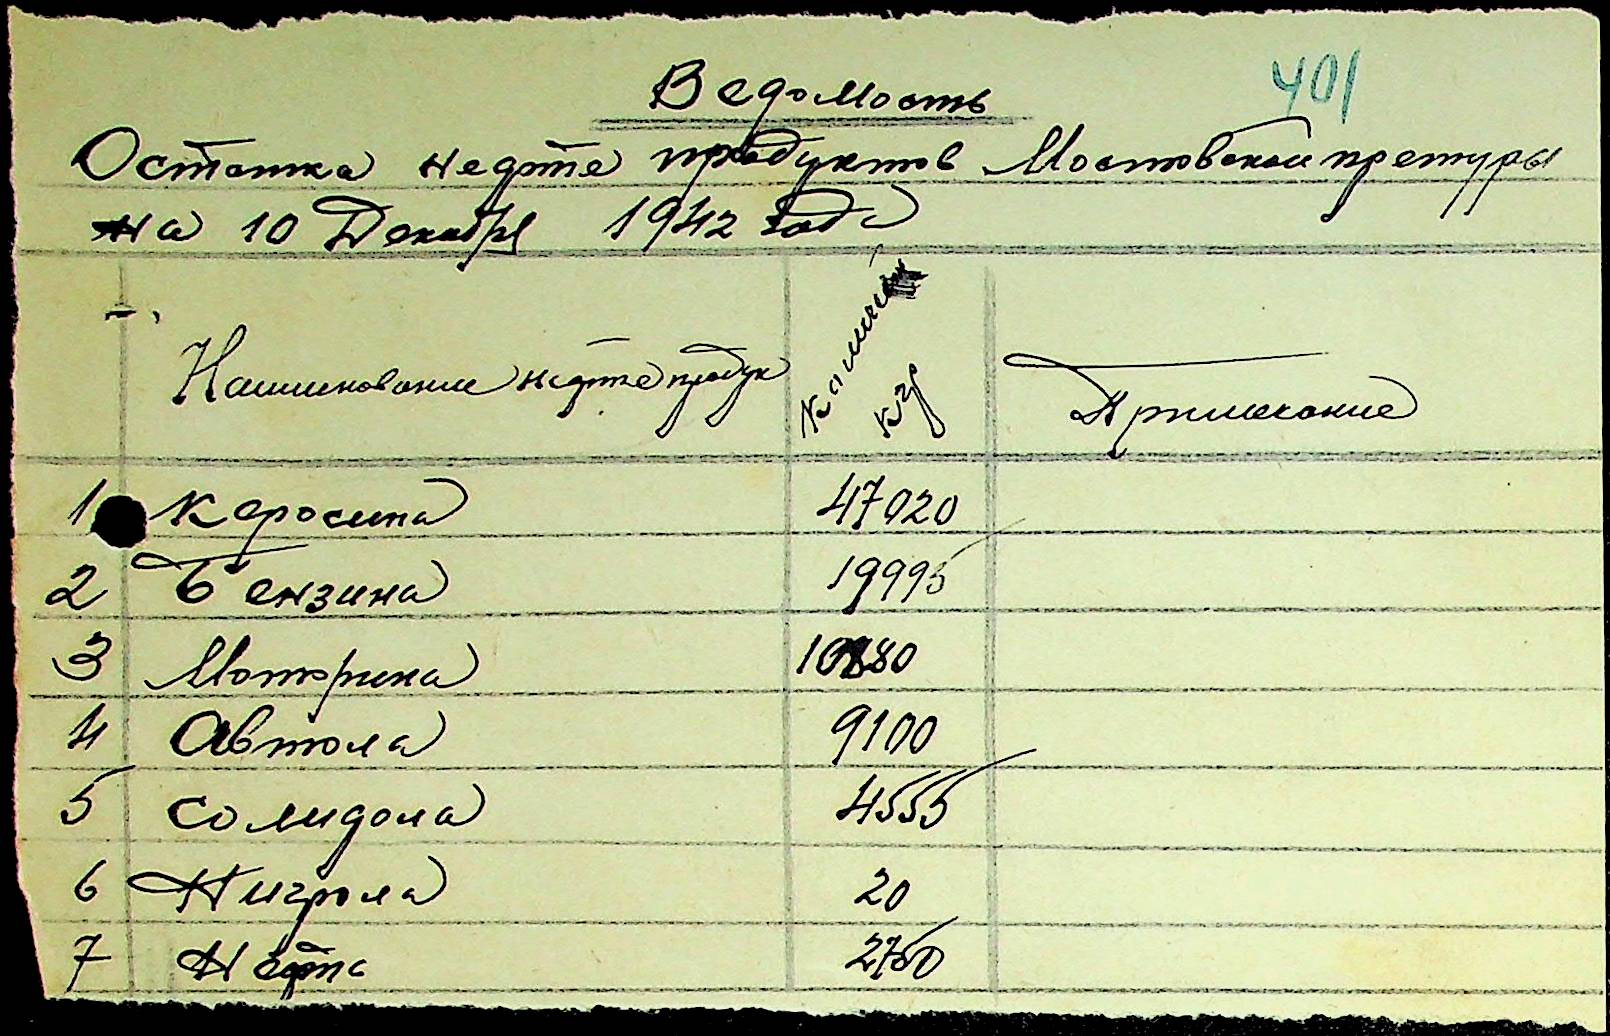 401
Ведомость
Остатка нефте продуктов Мостовской претуры
на 10 Декабря 1942 года
Наименование нефте продук
Количе
кгр
Примечание
1 Керосина 47020
2 Бензина 19995
3 Моторина
4 Автола 9100
5 Солидола 4555
6 Нигрола 20
7 Нефте 2750